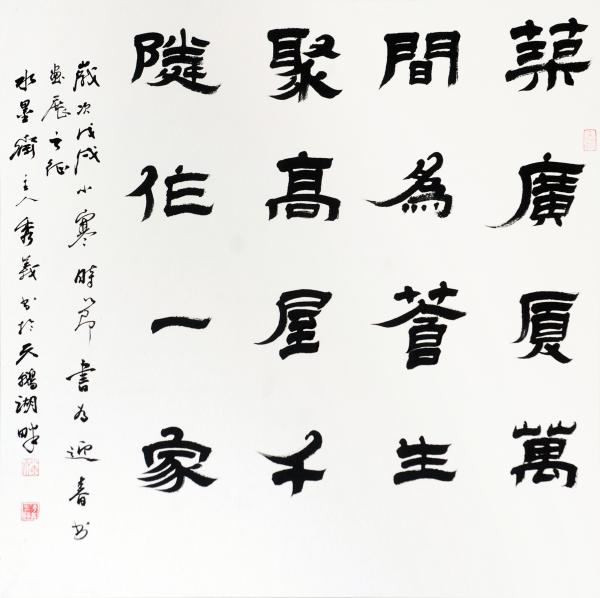 築廣厦萬
間為蒼生
聚高屋千
隣作一家
歲次戊戌小寒時節書为迎春书
畫展之征
水墨街主人秀義书於天鵝湖畔